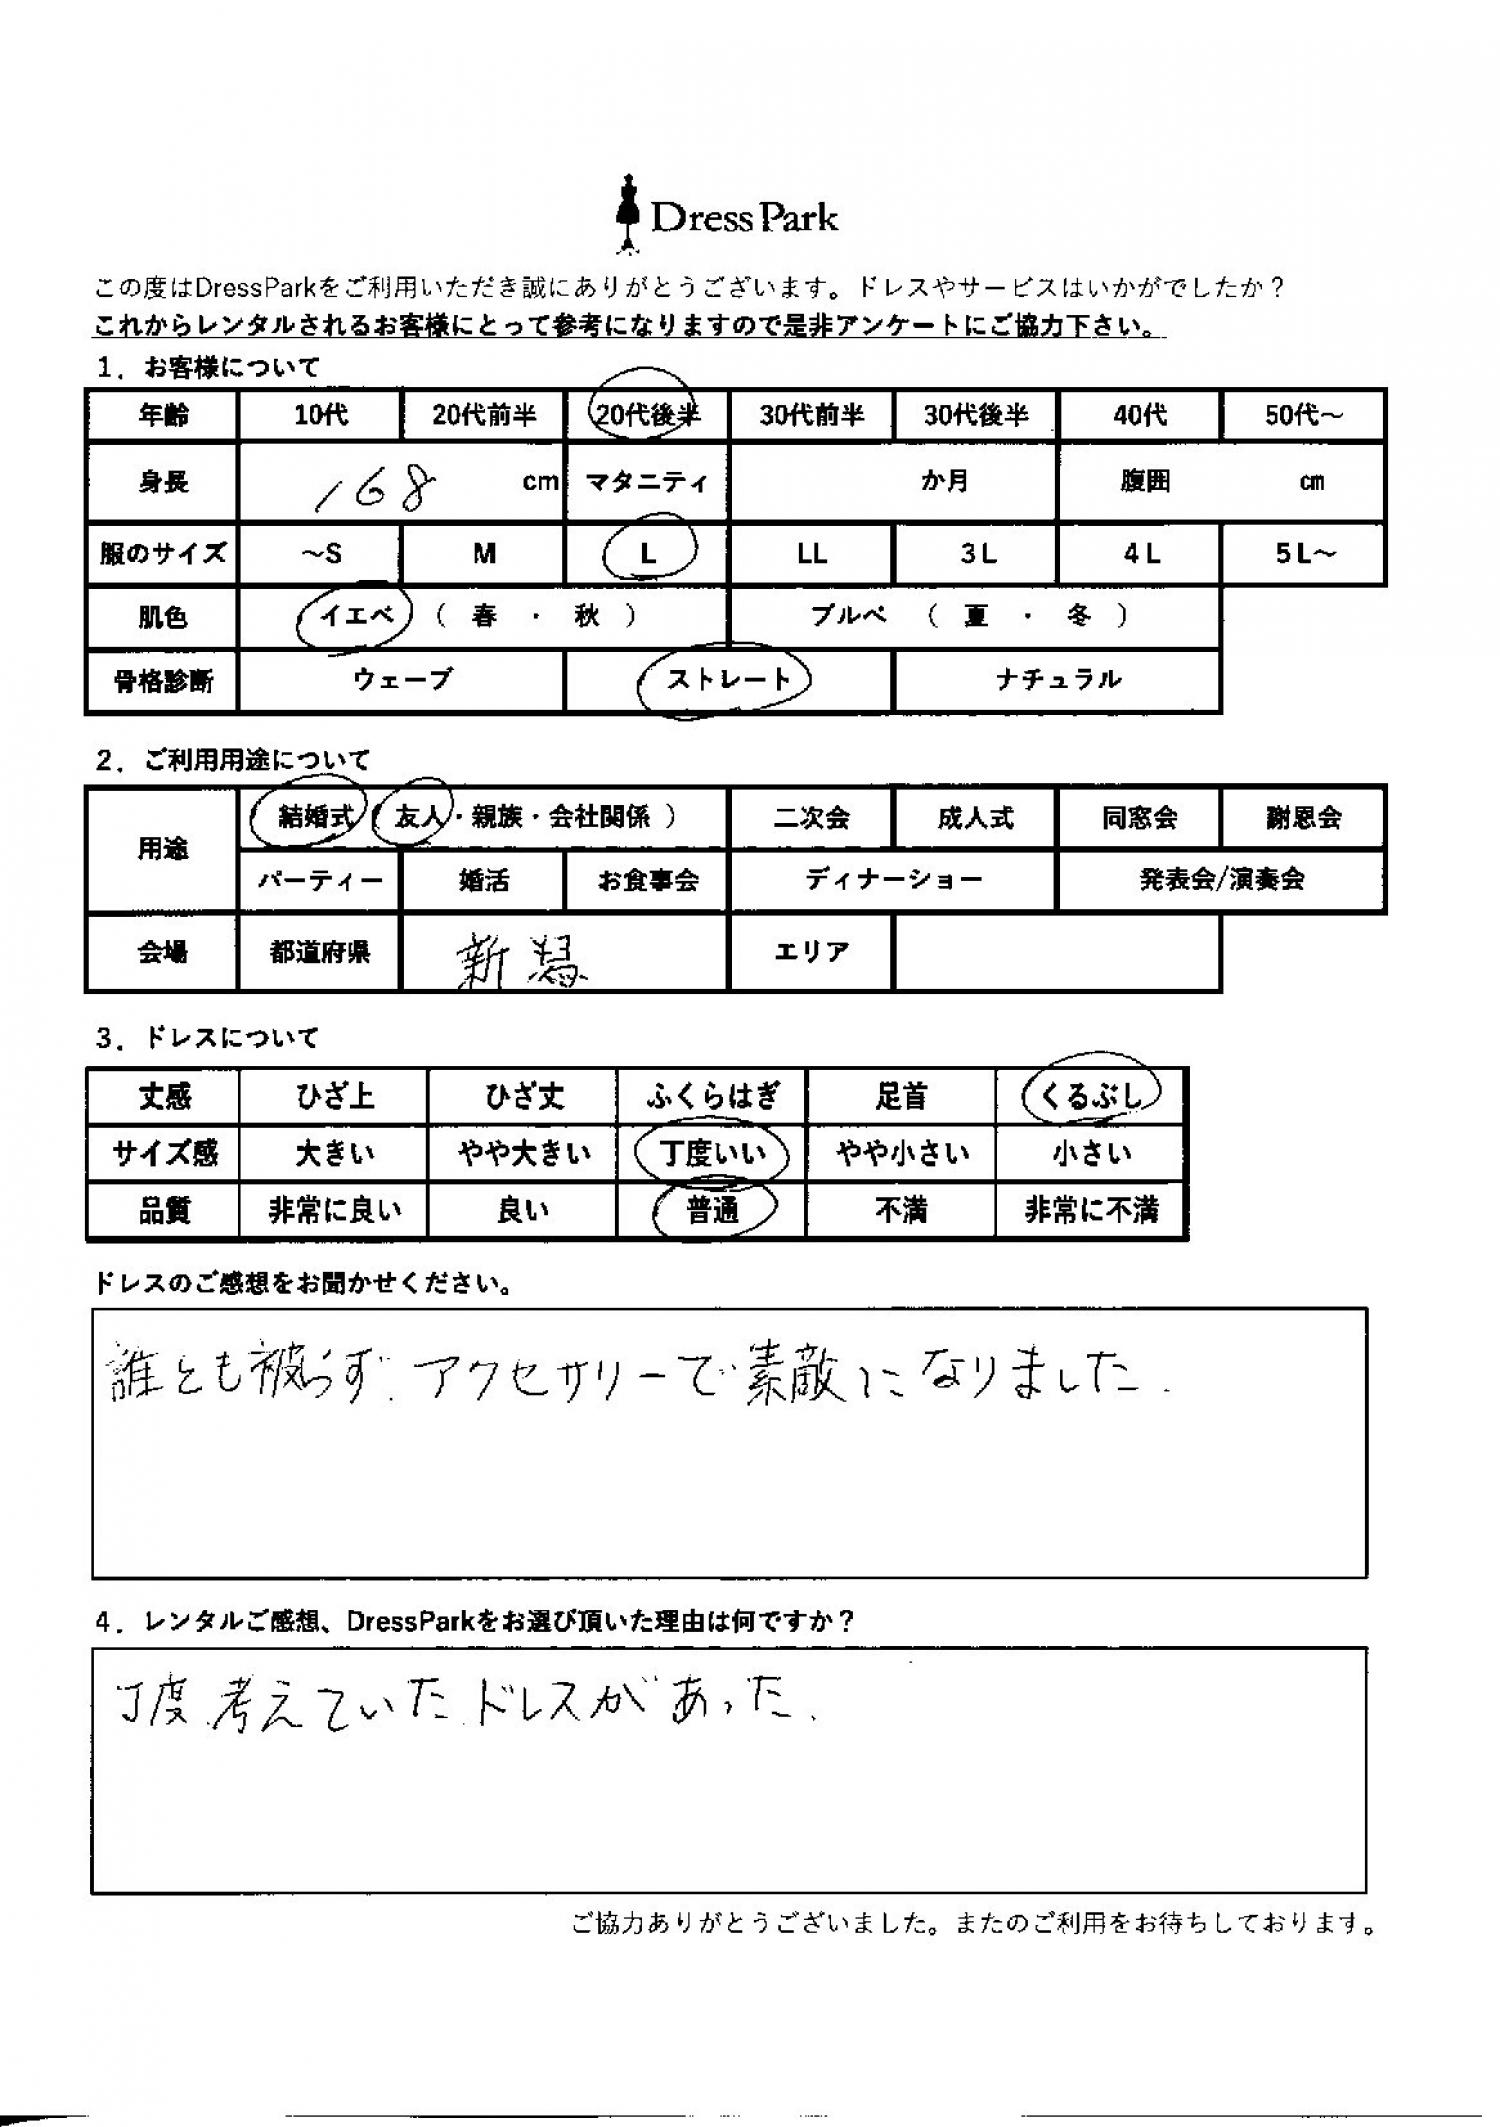 Dress Park
この度はDressParkをご利用いただき誠にありがとうございます。ドレスやサービスはいかがでしたか？
これからレンタルされるお客様にとって参考になりますので是非アンケートにご協力下さい。
1．お客様について
年齢 10代 20代前半 20代後半 30代前半 30代後半 40代 50代～
身長 168 cm マタニティ か月 腹囲 ㎝
服のサイズ ～S M L LL 3L 4L 5L～
肌色 イエベ （ 春 ・ 秋 ） ブルベ （ 夏 ・ 冬 ）
骨格診断 ウェーブ ストレート ナチュラル
2．ご利用用途について
用途 結婚式（ 友人・親族・会社関係 ） 二次会 成人式 同窓会 謝恩会
パーティー 婚活 お食事会 ディナーショー 発表会/演奏会
会場 都道府県 新潟 エリア
3．ドレスについて
丈感 ひざ上 ひざ丈 ふくらはぎ 足首 くるぶし
サイズ感 大きい やや大きい 丁度いい やや小さい 小さい
品質 非常に良い 良い 普通 不満 非常に不満
ドレスのご感想をお聞かせください。
誰とも被らず、アクセサリーで素敵になりました。
4．レンタルご感想、DressParkをお選び頂いた理由は何ですか？
丁度考えていたドレスがあった。
ご協力ありがとうございました。またのご利用をお待ちしております。